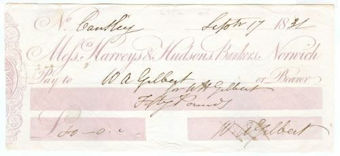 No. Cantley Septr 17 18
Messrs. Harveys & Hudsons Bankers, Norwich
Pay to W A Gilbert or Bearer
for W H Gilbert
Fifty Pounds
£50-0-0
W. A. Gilbert